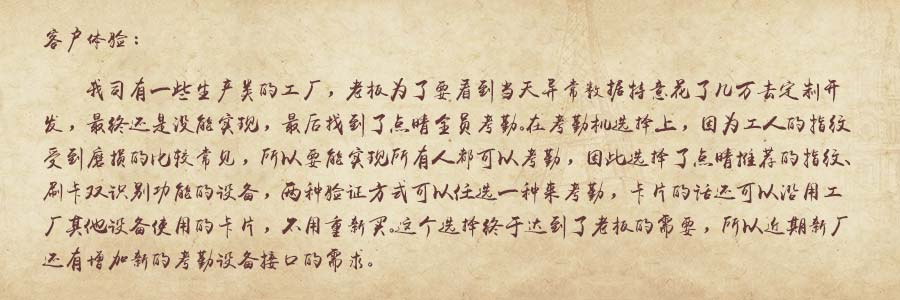 客户体验：
我司有一些生产类的工厂，老板为了要看到当天异常数据特意花了几万去定制开
发，最终还是没能实现，最后找到了点晴全员考勤。在考勤机选择上，因为工人的指纹
受到磨损的比较常见，所以要能实现所有人都可以考勤，因此选择了点晴推荐的指纹、
刷卡双识别功能的设备，两种验证方式可以任选一种来考勤，卡片的话还可以沿用工
厂其他设备使用的卡片，不用重新买。这个选择终于达到了老板的需要，所以近期新厂
还有增加新的考勤设备接口的需求。